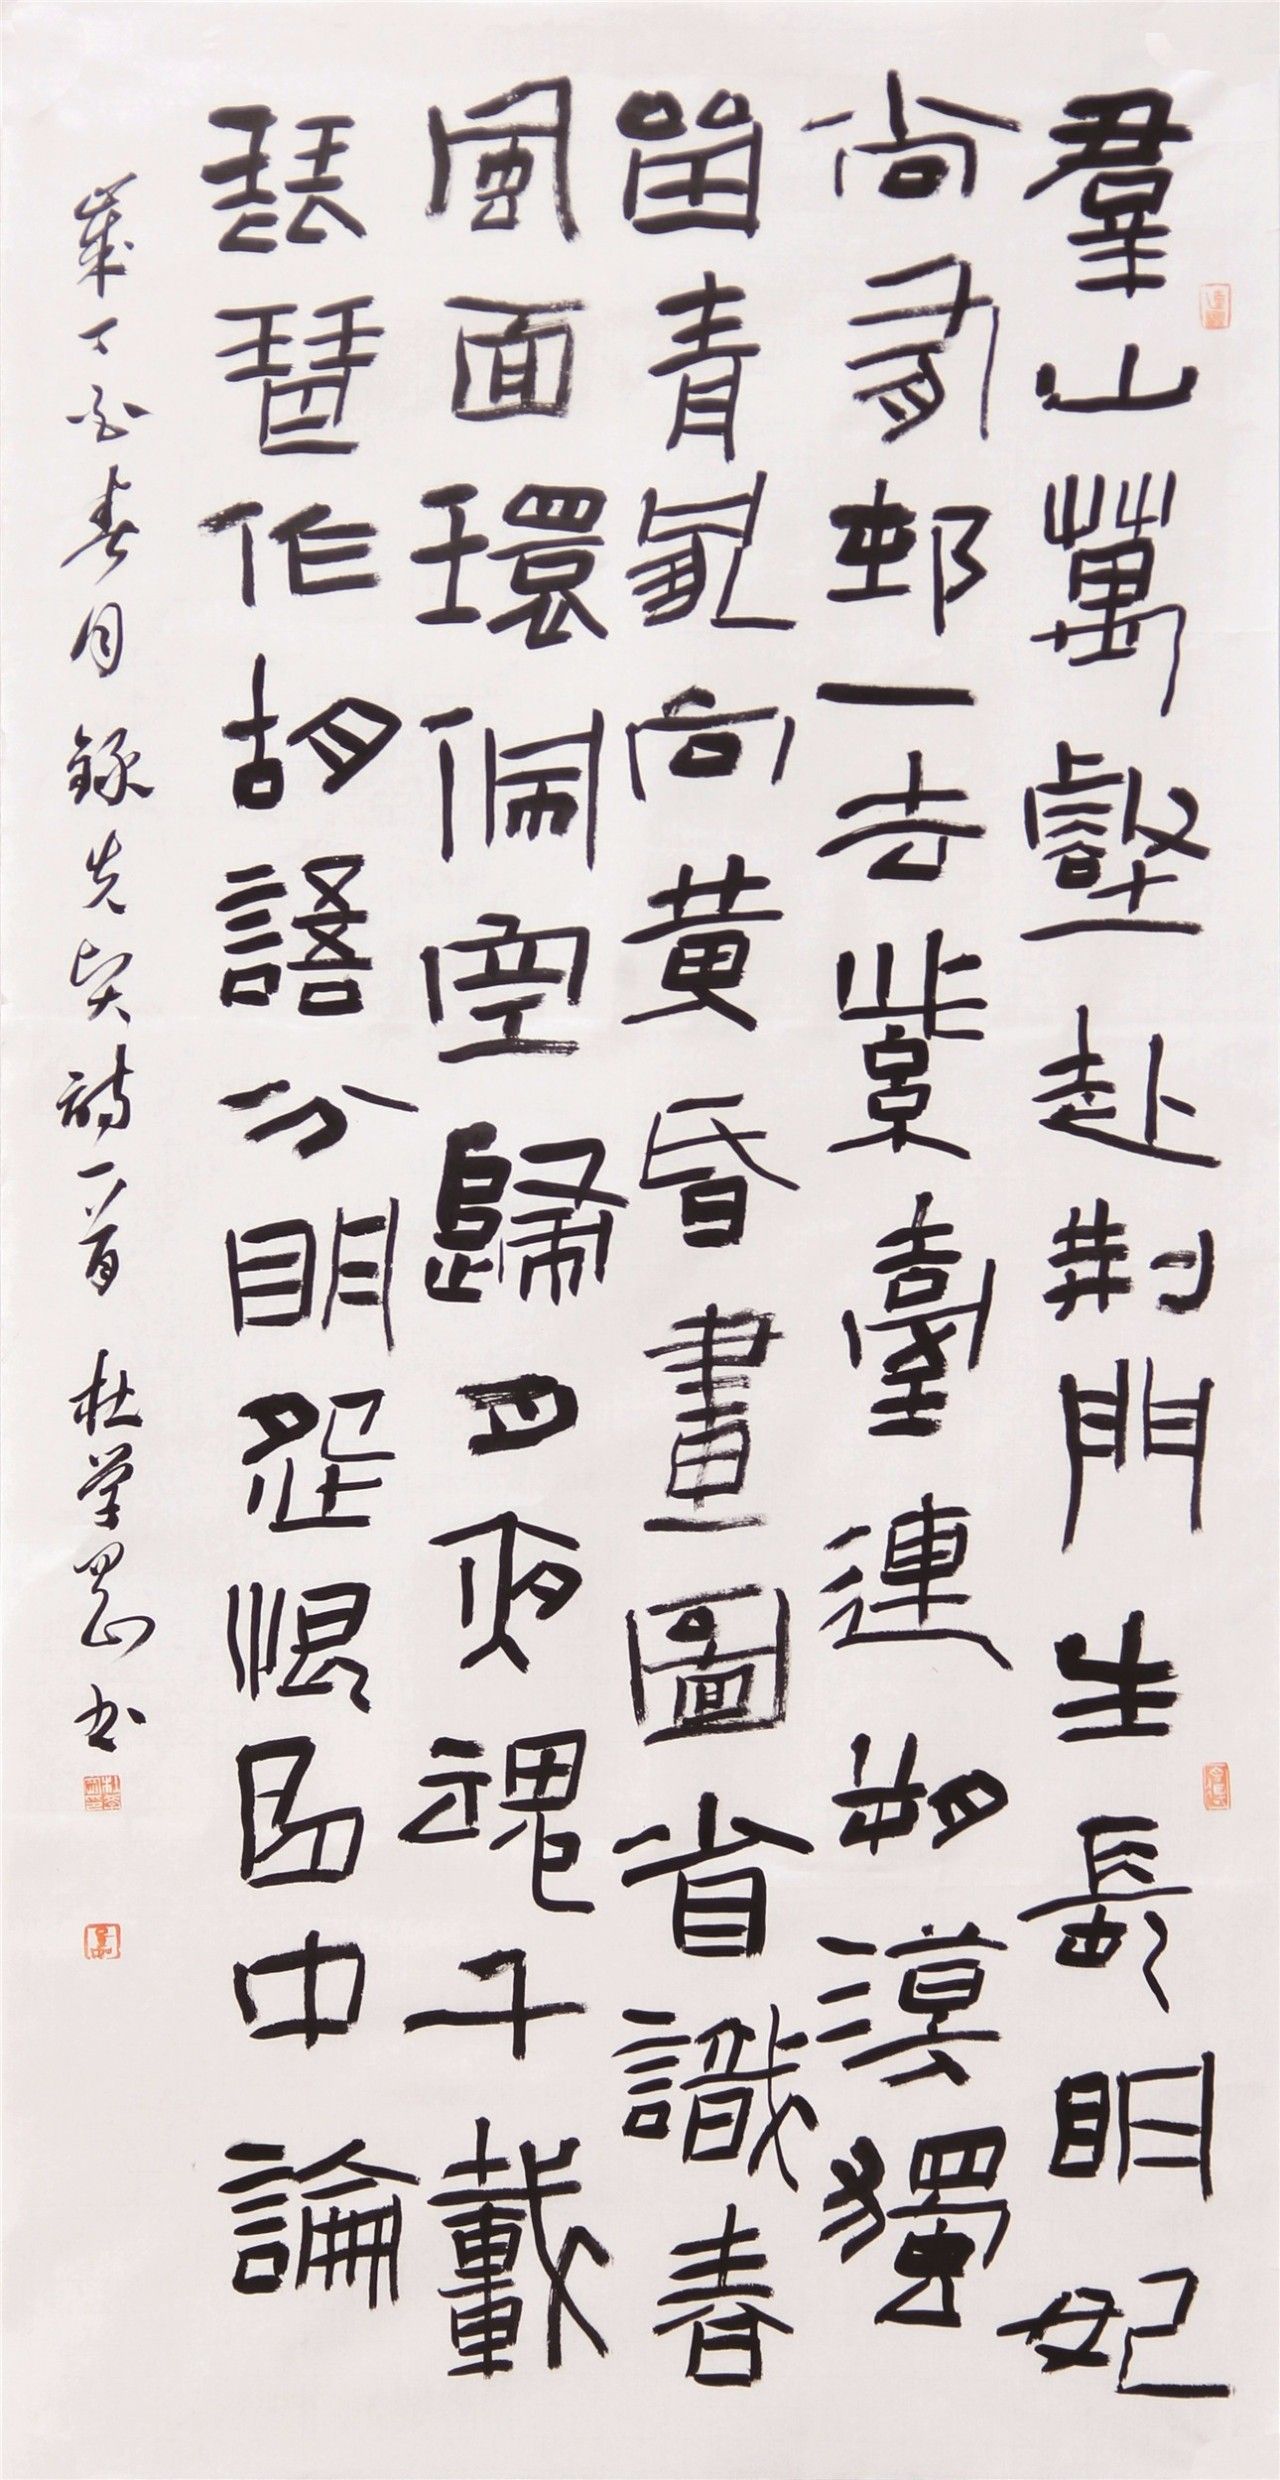 羣山萬壑赴荆門生長明妃
尚有邨一去紫臺連朔漠獨
留青冢向黄昏畫圖省識春
風面環佩空歸月夜魂千載
琵琶作胡語分明怨恨曲中論
歲丁酉春月錄先賢詩一首 杜學書